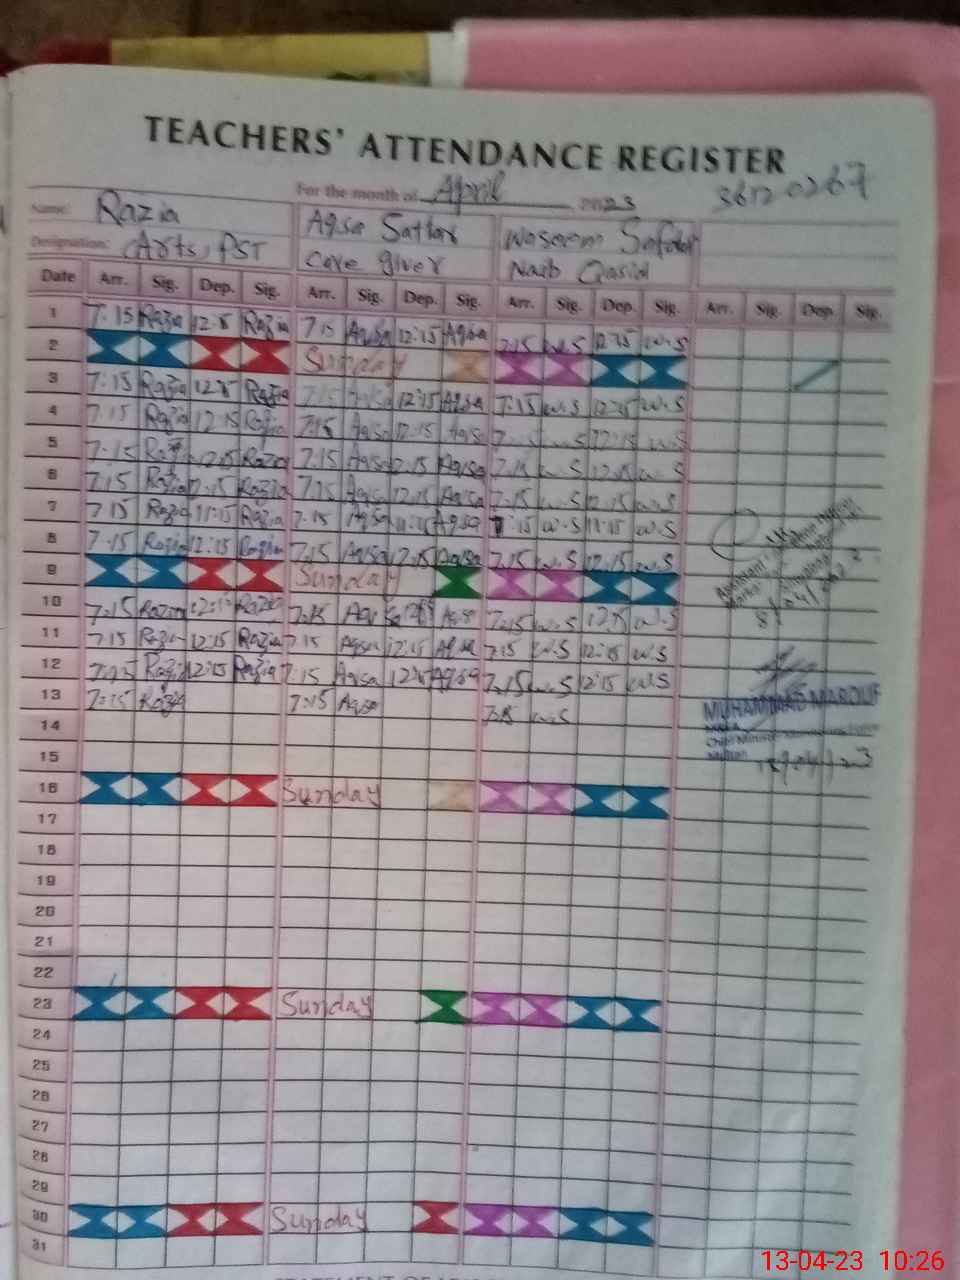 TEACHERS' ATTENDANCE REGISTER
For the month of April 2023 36120267
Name: Razia Aqsa Sattar Waseem Safdar
Designation: Arts, PST Care giver Naib Qasid
Date Arr. Sig. Dep. Sig. Arr. Sig. Dep. Sig. Arr. Sig. Dep. Sig. Arr. Sig. Dep. Sig.
1 7:15 Razia 12:15 Razia 7:15 Aqsa 12:15 Aqsa 7:15 W.S 12:15 W.S
2 Sunday
3 7:15 Razia 12:15 Razia 7:15 Aqsa 12:15 Aqsa 7:15 W.S 12:15 W.S
4 7:15 Razia 12:15 Razia 7:15 Aqsa 12:15 Aqsa W.S 12:15 W.S
5 7:15 Razia 12:15 Razia 7:15 Aqsa 12:15 Aqsa 7:15 W.S 12:15 W.S
6 7:15 Razia 12:15 Razia 7:15 Aqsa 12:15 Aqsa 7:15 W.S 12:15 W.S
7 7:15 Razia 11:15 Razia 7:15 Aqsa 11:15 Aqsa 7:15 W.S 11:15 W.S
8 7:15 Razia 12:15 Razia 7:15 Aqsa 12:15 Aqsa 7:15 W.S 12:15 W.S
9 Sunday
10 7:15 Razia 12:15 Razia 7:15 Aqsa Aqsa 7:15 W.S 12:15 W.S
11 7:15 Razia 12:15 Razia 7:15 Aqsa 12:15 Aqsa 7:15 W.S 12:15 W.S
12 7:15 Razia 12:15 Razia 7:15 Aqsa 12:15 Aqsa 7:15 W.S 12:15 W.S
13 7:15 Razia 7:15 Aqsa 7:15 W.S
MUHAMMAD MAROUF
14
15
16 Sunday
17
18
19
20
21
22
23 Sunday
24
25
26
27
28
29
30 Sunday
31
13-04-23 10:26